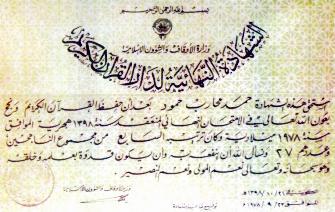 بسم الله الرحمن الرحيم
وزارة الأوقاف والشؤون الإسلامية
الشهادة النهائية لدار القرآن الكريم
هذه الشهادة حمد محارب حمود بعد أن حفظ القرآن الكريم ونجح
بعون الله تعالى في الامتحان النهائي المنعقد سنة ١٣٩٨ هجرية الموافق
سنة ١٩٧٨ ميلادية وكان ترتيبه السابع من مجموع الناجحين
وعددهم ٢٧ ونسأل الله أن ينفعه به وأن يكون قدوة بعلمه وخلقه
وهو سبحانه وتعالى نعم المولى ونعم النصير